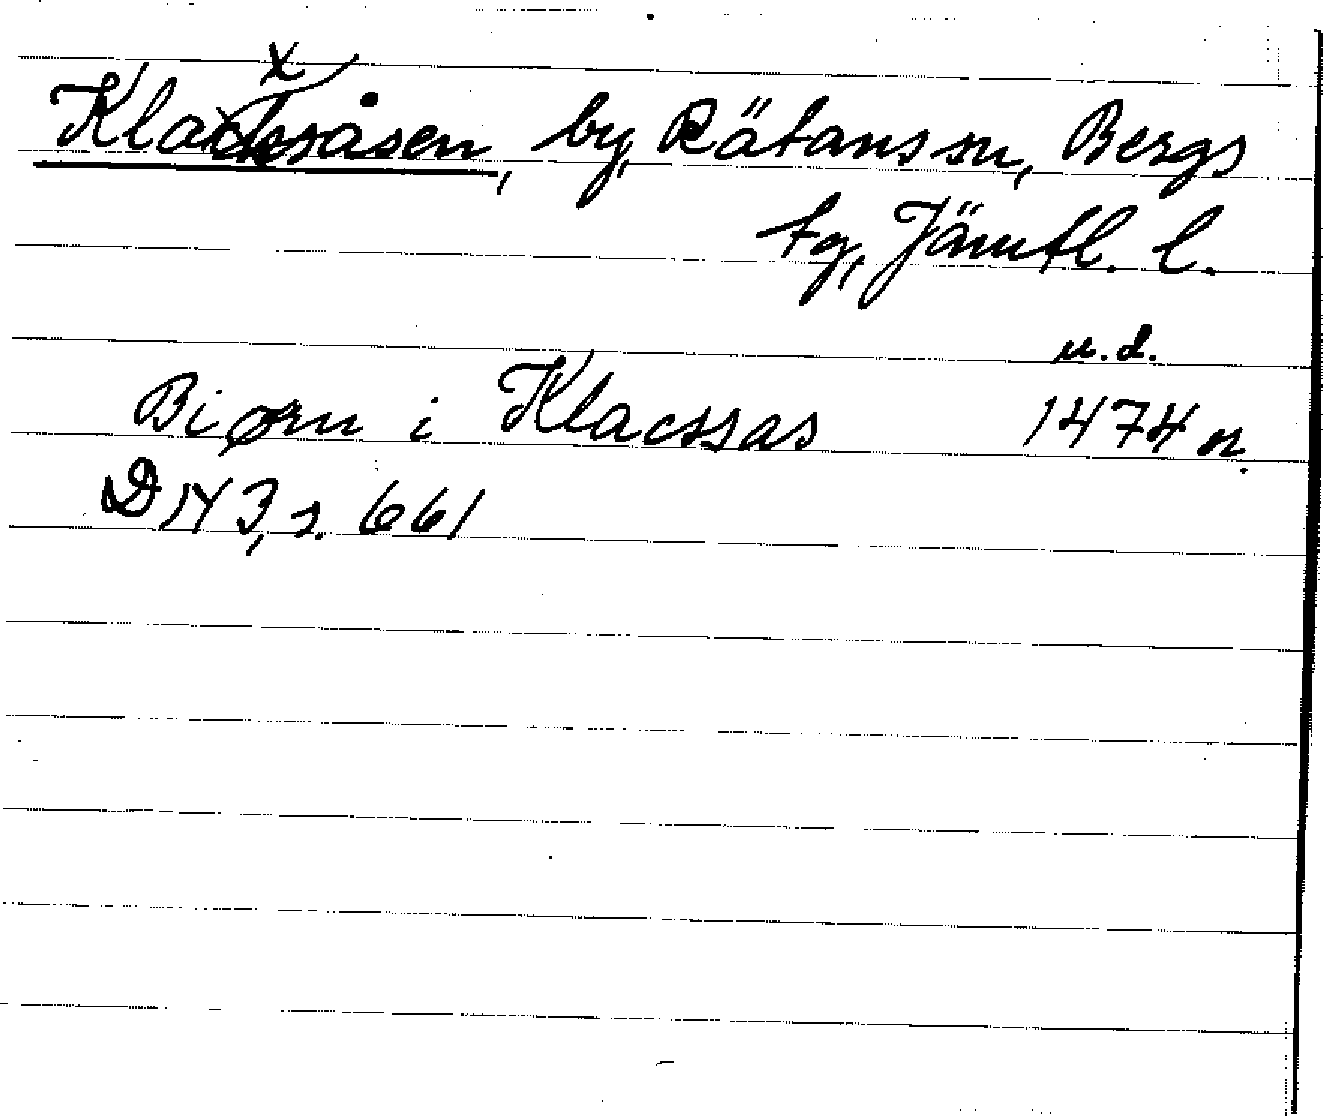 Klaxåsen, by, Rätans sn, Bergs
tg, Jämtl. l.
u. d.
Biørn i Klacssas 1474 n.
DN 3, s. 661